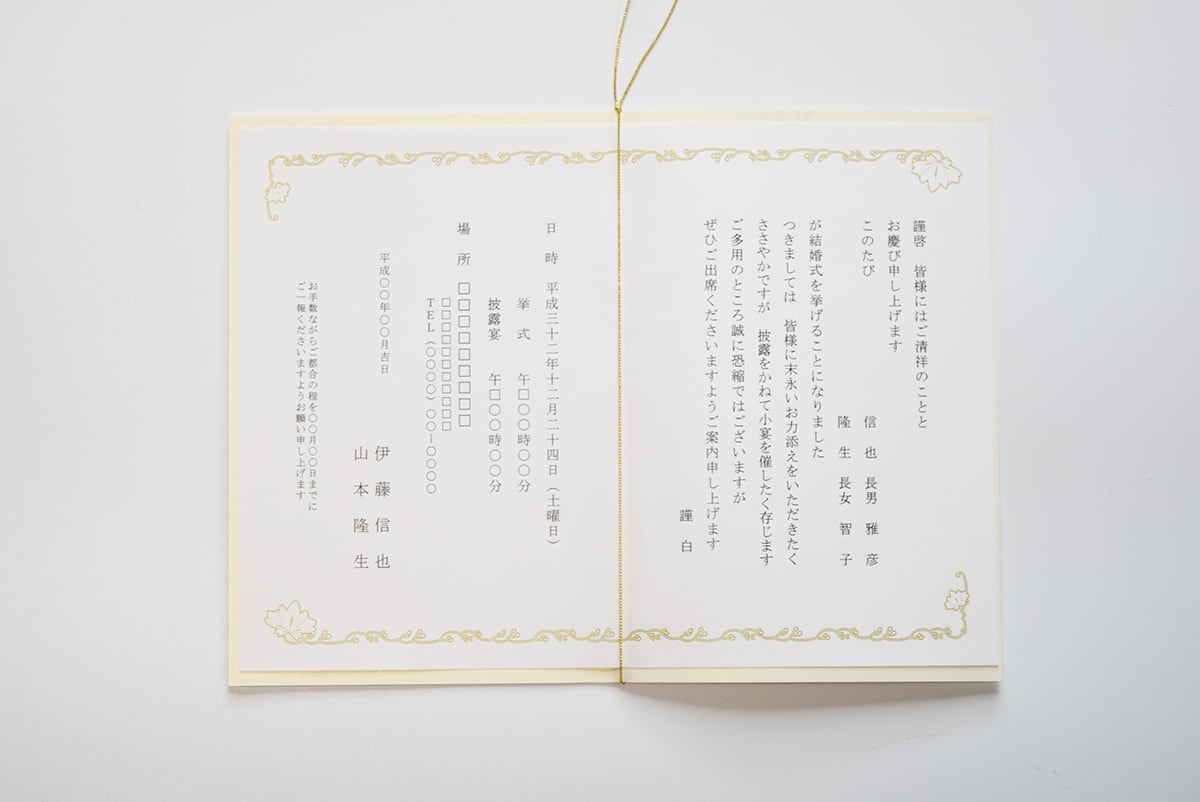 謹啓　皆様にはご清祥のことと
お慶び申し上げます
このたび
信　也　長男　雅　彦
隆　生　長女　智　子
が結婚式を挙げることになりました
つきましては　皆様に末永いお力添えをいただきたく
ささやかですが　披露をかねて小宴を催したく存じます
ご多用のところ誠に恐縮ではございますが
ぜひご出席くださいますようご案内申し上げます
謹　白
日　時　平成三十二年十二月二十四日（土曜日）
挙　式　午□〇〇時〇〇分
披露宴　午□〇〇時〇〇分
場　所　□□□□□□□□□
□□□□□□□□□□□
TEL（〇〇〇〇）〇〇ー〇〇〇〇
平成〇〇年〇〇月吉日
伊　藤　信　也
山　本　隆　生
お手数ながらご都合の程を〇〇月〇〇日までに
ご一報くださいますようお願い申し上げます